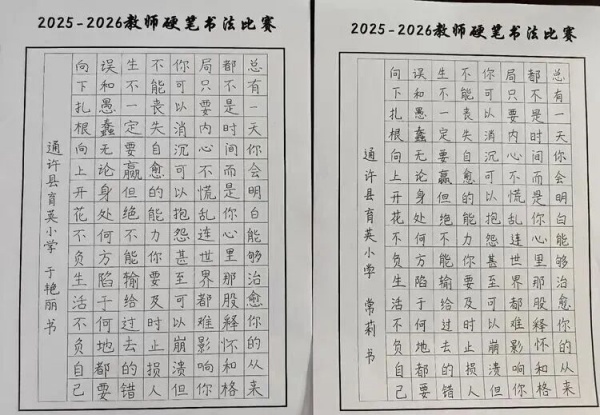 2025-2026教师硬笔书法比赛
总有一天你会明白能够治愈你的从来
都不是时间而是你心里那股释怀和格
局只要内心不慌乱连世界都难影响你
你可以消沉可以抱怨甚至可以崩溃但
不能丧失自愈的能力你要及时止损人
生不一定要赢但绝不能输给过去的错
误和愚蠢无论身处何方陷于何地都要
向下扎根向上开花不负生活不负自己
通许县育英小学 于艳丽书
2025-2026教师硬笔书法比赛
总有一天你会明白能够治愈你的从来
都不是时间而是你心里那股释怀和格
局只要内心不慌乱连世界都难影响你
你可以消沉可以抱怨甚至可以崩溃但
不能丧失自愈的能力你要及时止损人
生不一定要赢但绝不能输给过去的错
误和愚蠢无论身处何方陷于何地都要
向下扎根向上开花不负生活不负自己
通许县育英小学 常莉书